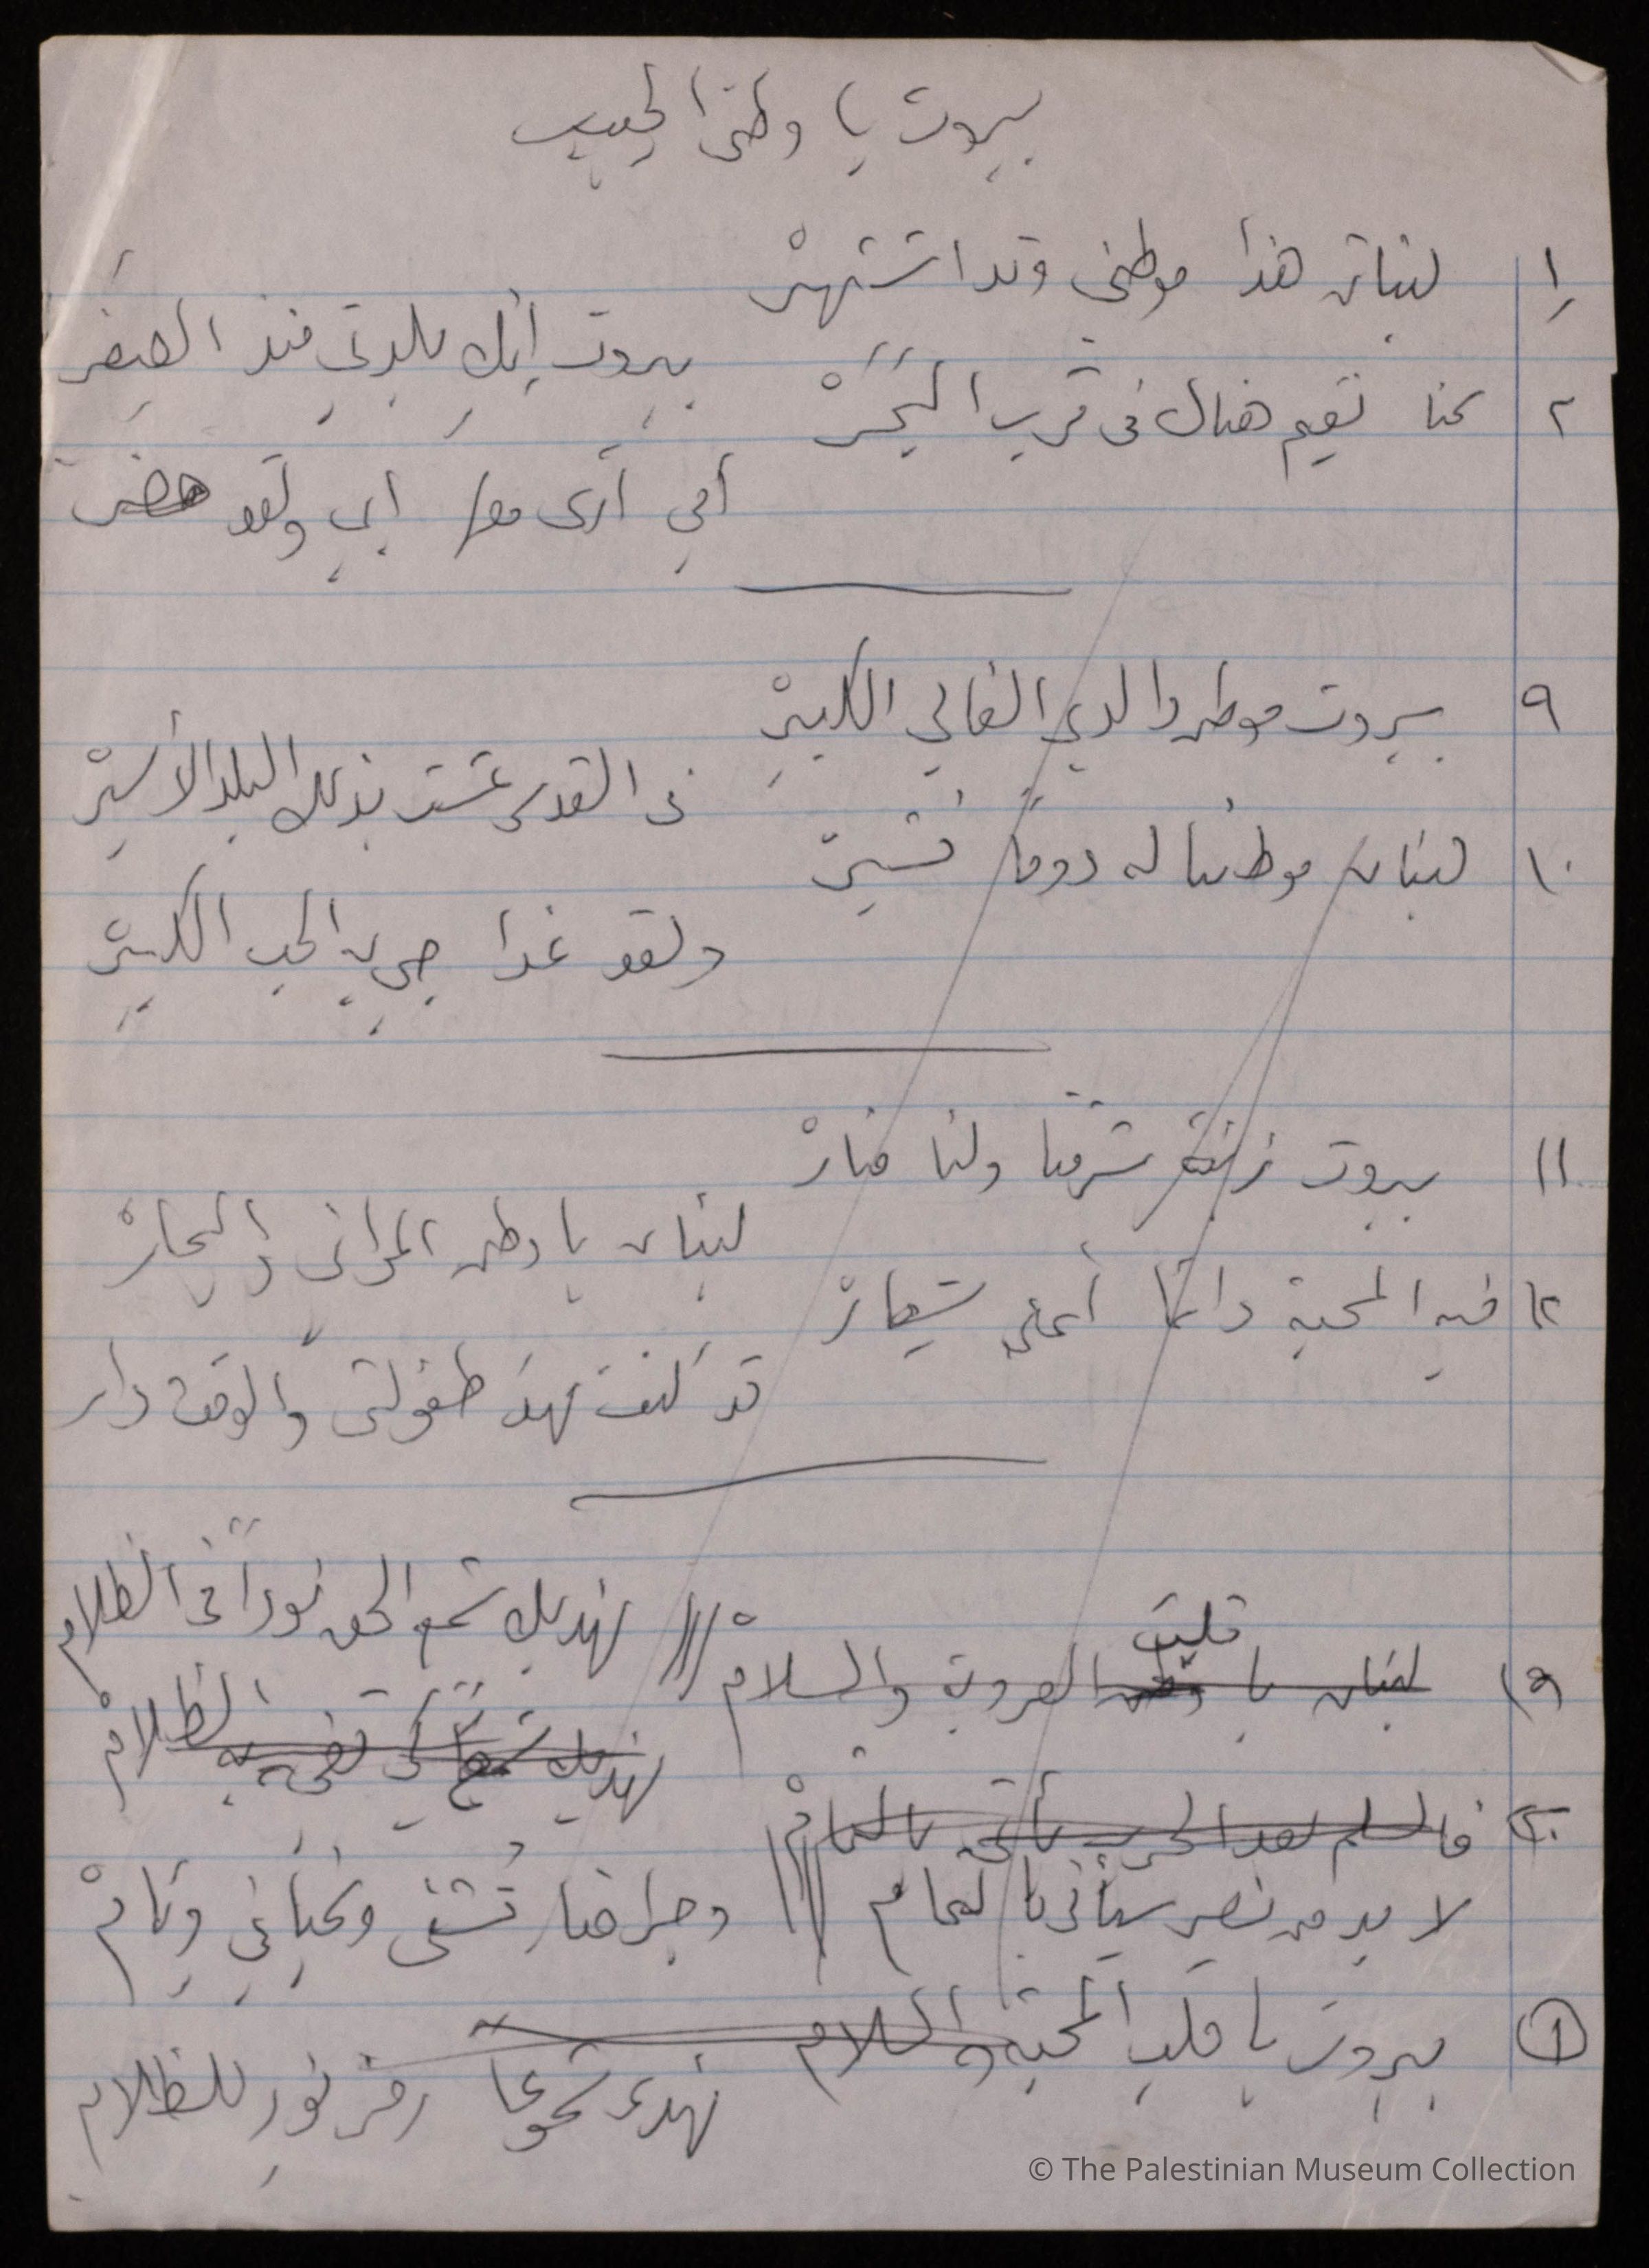 بيروت يا وطني الحبيب
١ لبنان هذا موطني وقد اشتهرْ
بيروت إنك بلدتي منذ الصغَر
٢ كنا نقيم هناك في قرب البَحَرْ
أمي أرى مع أبي ولقد حضر
٩ بيروت موطن والدي الغالي الكبيرْ
في القدس عشت بذلك البلد الأسيرْ
١٠ لبنان موطننا له دوماً نُشيرْ
ولقد غدا جي به الحب الكبيرْ
١١ بيروت زينة شرقنا ولنا منارْ
لبنان يا وطن الموانئ والبحارْ
١٢ فيه المحبة دائماً أعلى شعارْ
قد كنت مهدَ طفولتي والوقت دار
١٩ لبنان يا وطن قلب العروبة والسلامْ
نهديك شمع الحق نوراً في الظلام
نهديك شمعاً كي تضيء به الظلامْ
٢٠ فالسلم بعد الحرب يأتي بالتمامْ
لا بد من نصر سيأتي بالتمام
وجراحنا تُشفى ونحيا في وئامْ
١ بيروت يا قلب المحبة والسلام
نهدي شموعا رمز نور للظلام
© The Palestinian Museum Collection